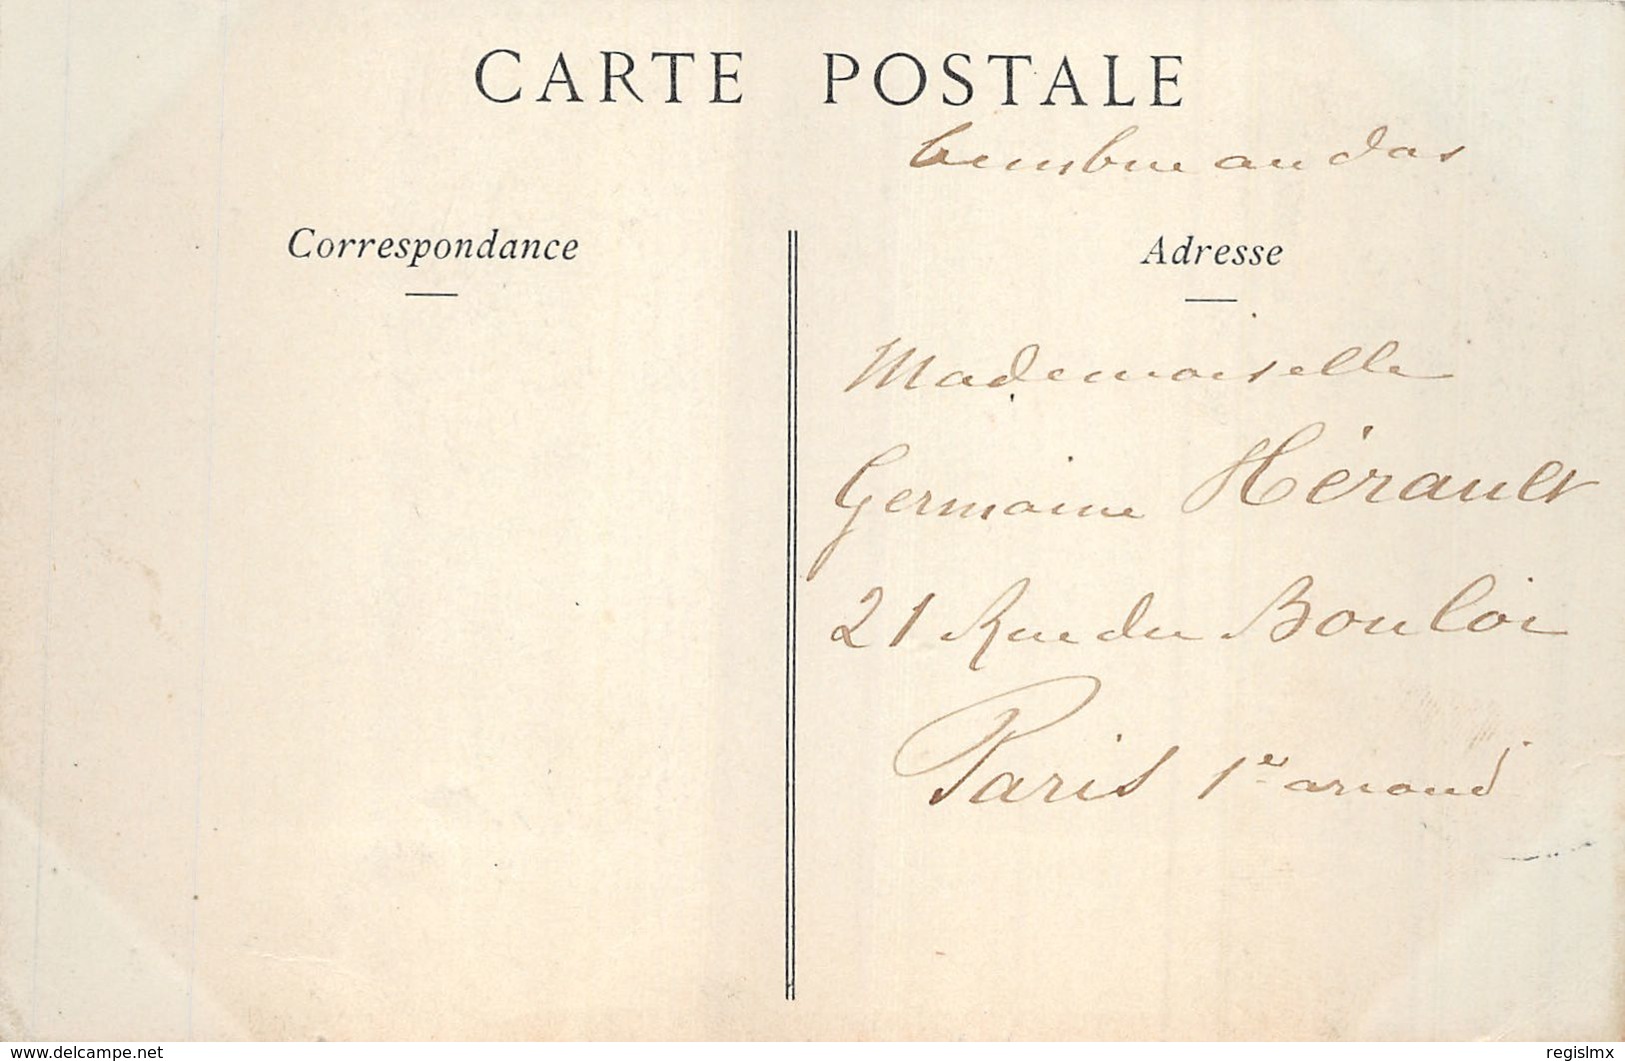 CARTE POSTALE
timbre au dos
Correspondance
Adresse
Mademoiselle
Germaine Hérault
21 Rue du Bouloi
Paris 1er arrond
www.delcampe.net
regislmx